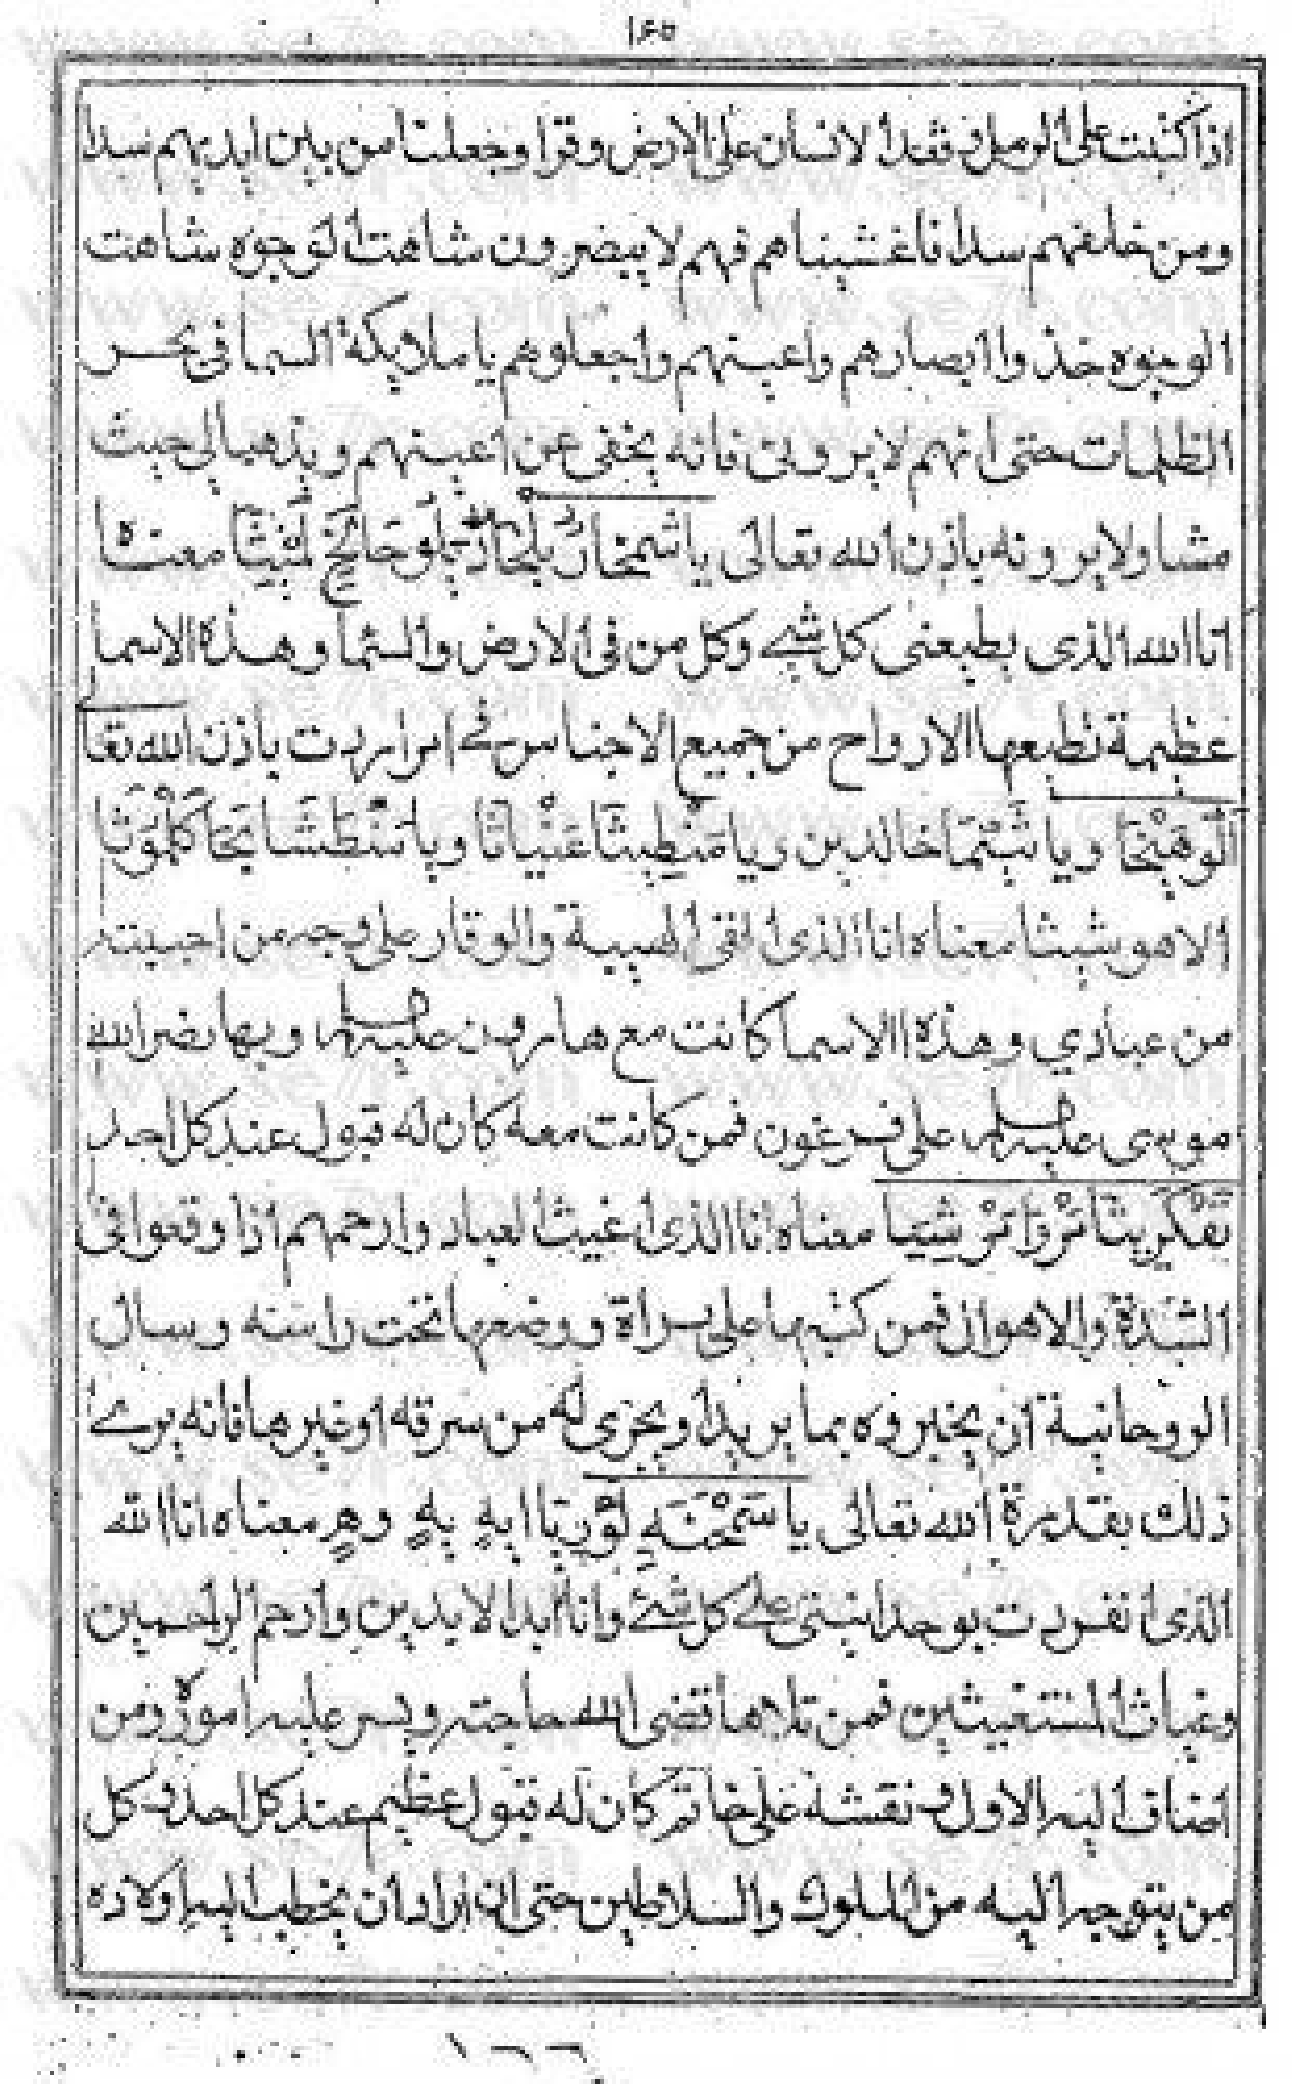 ١٦٥
اذا كتبت على الرمل وقعد الانسان على الارض وقرا وجعلنا من بين ايديهم سدا
ومن خلفهم سدا فاغشيناهم فهم لا يبصرون شاهت الوجوه شاهت
الوجوه خذوا ابصارهم واعينهم واجعلوهم يا ملايكة السما فى بحر
الظلمات حتى انهم لا يرونى فانه يخفى عن اعينهم ويذهب الى حيث
شا ولا يرونه باذن الله تعالى يا معناه
انا الله الذى يطيعنى كل شيء وكل من فى الارض والسما وهذه الاسما
عظيمة تطيعها الارواح من جميع الاجناس فى اردت باذن الله تعالى
ويا خالدين ويا ويا
الاهو معناه انا الذى القى الهيبة والوقار على وجه من احببته
من عبادي وهذه الاسما كانت مع هارون عليه السلام وبها نصر الله
موسى عليه السلام على فرعون فمن كانت معه كان له قبول عند كل احد
معناه انا الذى اغيث العباد وارحمهم اذا وقعوا فى
الشدة والاهوال فمن كتبها على براة ووضعها تحت راسه وسال
الروحانية ان يخبروه بما يريد او من سرقه او غيرها فانه يرى
ذلك بقدرة الله تعالى يا معناه انا الله
الذى انفردت بوحدانيتى على كل شئ وانا ابد الابدين وارحم الراحمين
وغياث المستغيثين فمن تلاها قضى الله حاجته ويسر عليه اموره ومن
اضاف اليه الاول ونقشه على خاتم كان له قبول عظيم عند كل احد وكل
من يتوجه اليه من الملوك والسلاطين حتى انه اذا اراد ان يخطب اليه اولاده
١٦٦